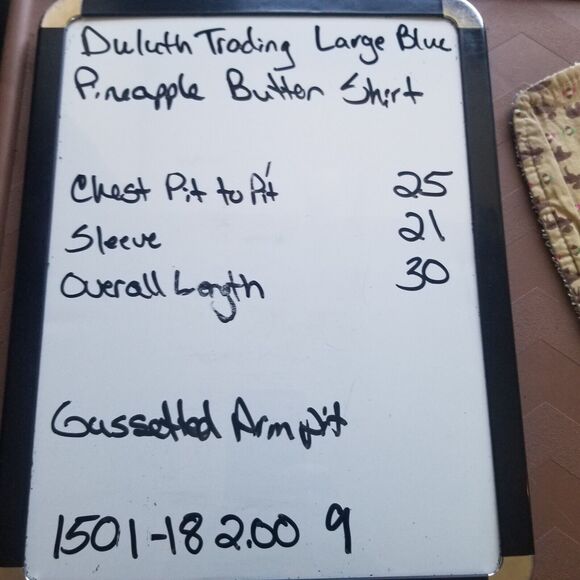 Duluth Trading Large Blue
Pineapple Button Shirt
Chest Pit to Pit 25
Sleeve 21
Overall Length 30
Gussetted Armpit
1501-18 2.00 9